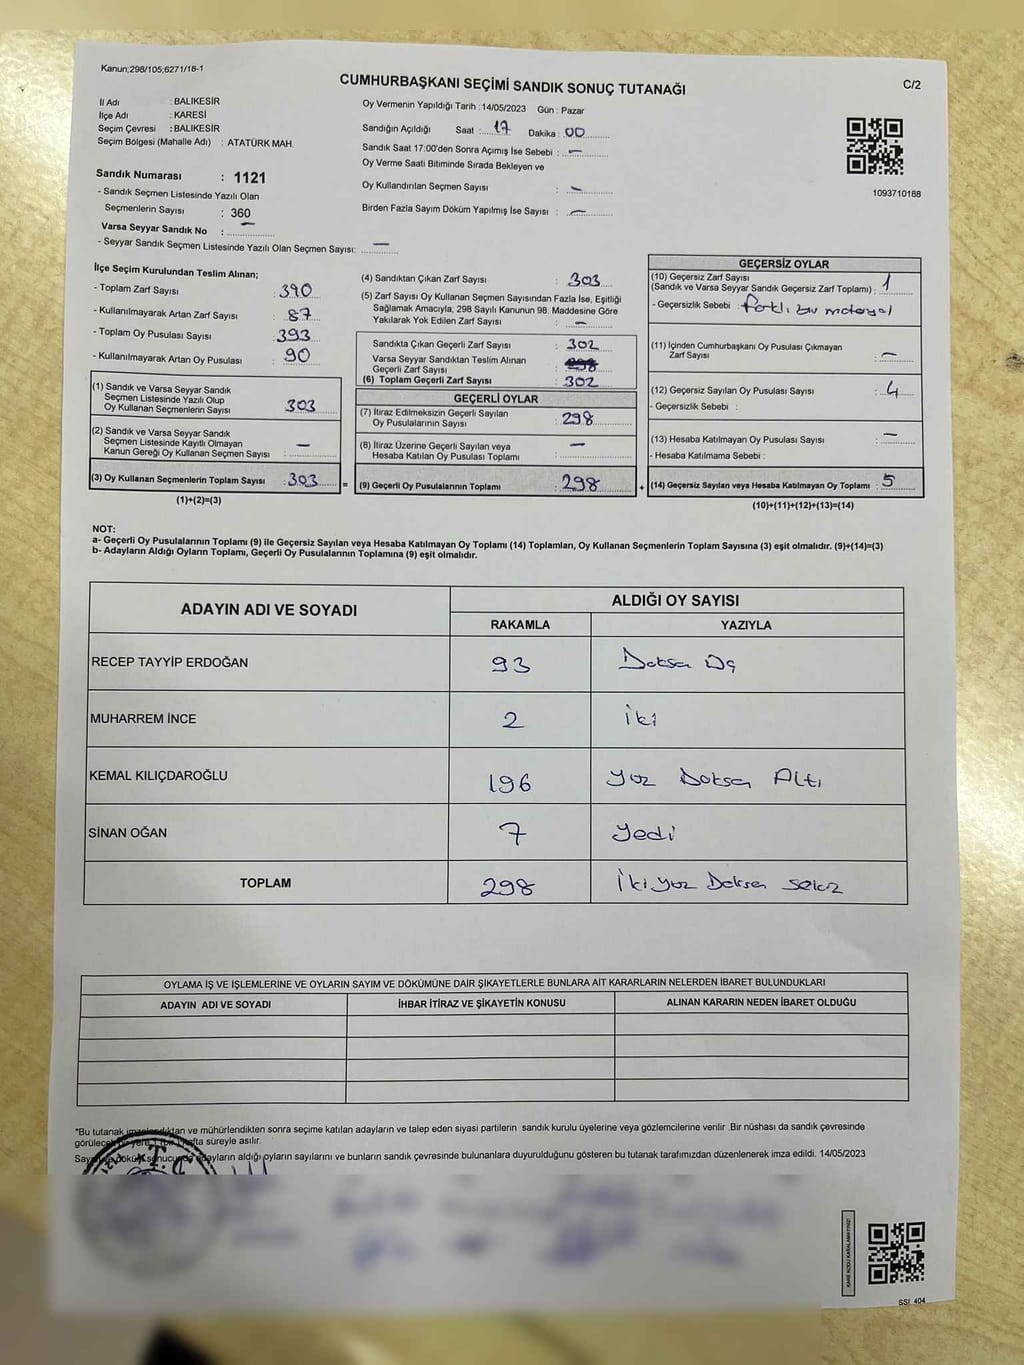 Kanun;298/105;6271/18-1
C/2
CUMHURBAŞKANI SEÇİMİ SANDIK SONUÇ TUTANAĞI
İl Adı : BALIKESİR
İlçe Adı : KARESİ
Seçim Çevresi : BALIKESİR
Seçim Bölgesi (Mahalle Adı) : ATATÜRK MAH.
Sandık Numarası : 1121
- Sandık Seçmen Listesinde Yazılı Olan
Seçmenlerin Sayısı : 360
Varsa Seyyar Sandık No : —
- Seyyar Sandık Seçmen Listesinde Yazılı Olan Seçmen Sayısı: —
Oy Vermenin Yapıldığı Tarih : 14/05/2023 Gün : Pazar
Sandığın Açıldığı Saat : 17 Dakika : 00
Sandık Saat 17:00'den Sonra Açımış İse Sebebi : —
Oy Verme Saati Bitiminde Sırada Bekleyen ve
Oy Kullandırılan Seçmen Sayısı : —
Birden Fazla Sayım Döküm Yapılmış İse Sayısı : —
1093710188
İlçe Seçim Kurulundan Teslim Alınan;
- Toplam Zarf Sayısı : 390
- Kullanılmayarak Artan Zarf Sayısı : 87
- Toplam Oy Pusulası Sayısı : 393
- Kullanılmayarak Artan Oy Pusulası : 90
(1) Sandık ve Varsa Seyyar Sandık
Seçmen Listesinde Yazılı Olup
Oy Kullanan Seçmenlerin Sayısı : 303
(2) Sandık ve Varsa Seyyar Sandık
Seçmen Listesinde Kayıtlı Olmayan
Kanun Gereği Oy Kullanan Seçmen Sayısı : —
(3) Oy Kullanan Seçmenlerin Toplam Sayısı : 303
(1)+(2)=(3)
=
(4) Sandıktan Çıkan Zarf Sayısı : 303
(5) Zarf Sayısı Oy Kullanan Seçmen Sayısından Fazla İse, Eşitliği
Sağlamak Amacıyla, 298 Sayılı Kanunun 98. Maddesine Göre
Yakılarak Yok Edilen Zarf Sayısı : —
Sandıkta Çıkan Geçerli Zarf Sayısı : 302
Varsa Seyyar Sandıktan Teslim Alınan
Geçerli Zarf Sayısı :
(6) Toplam Geçerli Zarf Sayısı : 302
GEÇERLİ OYLAR
(7) İtiraz Edilmeksizin Geçerli Sayılan
Oy Pusulalarının Sayısı : 298
(8) İtiraz Üzerine Geçerli Sayılan veya
Hesaba Katılan Oy Pusulası Toplamı : —
(9) Geçerli Oy Pusulalarının Toplamı : 298
+
GEÇERSİZ OYLAR
(10) Geçersiz Zarf Sayısı
(Sandık ve Varsa Seyyar Sandık Geçersiz Zarf Toplamı) : 1
- Geçersizlik Sebebi :
(11) İçinden Cumhurbaşkanı Oy Pusulası Çıkmayan
Zarf Sayısı : —
(12) Geçersiz Sayılan Oy Pusulası Sayısı : 4
- Geçersizlik Sebebi :
(13) Hesaba Katılmayan Oy Pusulası Sayısı : —
- Hesaba Katılmama Sebebi :
(14) Geçersiz Sayılan veya Hesaba Katılmayan Oy Toplamı : 5
(10)+(11)+(12)+(13)=(14)
NOT:
a- Geçerli Oy Pusulalarının Toplamı (9) ile Geçersiz Sayılan veya Hesaba Katılmayan Oy Toplamı (14) Toplamları, Oy Kullanan Seçmenlerin Toplam Sayısına (3) eşit olmalıdır. (9)+(14)=(3)
b- Adayların Aldığı Oyların Toplamı, Geçerli Oy Pusulalarının Toplamına (9) eşit olmalıdır.
ADAYIN ADI VE SOYADI
ALDIĞI OY SAYISI
RAKAMLA YAZIYLA
RECEP TAYYİP ERDOĞAN 93 Doksan Üç
MUHARREM İNCE 2 İki
KEMAL KILIÇDAROĞLU 196 Yüz Doksan Altı
SİNAN OĞAN 7 Yedi
TOPLAM 298 İkiyüz Doksan Sekiz
OYLAMA İŞ VE İŞLEMLERİNE VE OYLARIN SAYIM VE DÖKÜMÜNE DAİR ŞİKAYETLERLE BUNLARA AİT KARARLARIN NELERDEN İBARET BULUNDUKLARI
ADAYIN ADI VE SOYADI İHBAR İTİRAZ VE ŞİKAYETİN KONUSU ALINAN KARARIN NEDEN İBARET OLDUĞU
*Bu tutanak imzalandıktan ve mühürlendikten sonra seçime katılan adayların ve talep eden siyasi partilerin sandık kurulu üyelerine veya gözlemcilerine verilir .Bir nüshası da sandık çevresinde
görülecek bir yere 1 (bir) hafta süreyle asılır.
Sayım ve döküm sonucunda adayların aldığı oyların sayılarını ve bunların sandık çevresinde bulunanlara duyurulduğunu gösteren bu tutanak tarafımızdan düzenlenerek imza edildi. 14/05/2023
T.C
KARE KODU KARALAMAYINIZ!
SSI_404